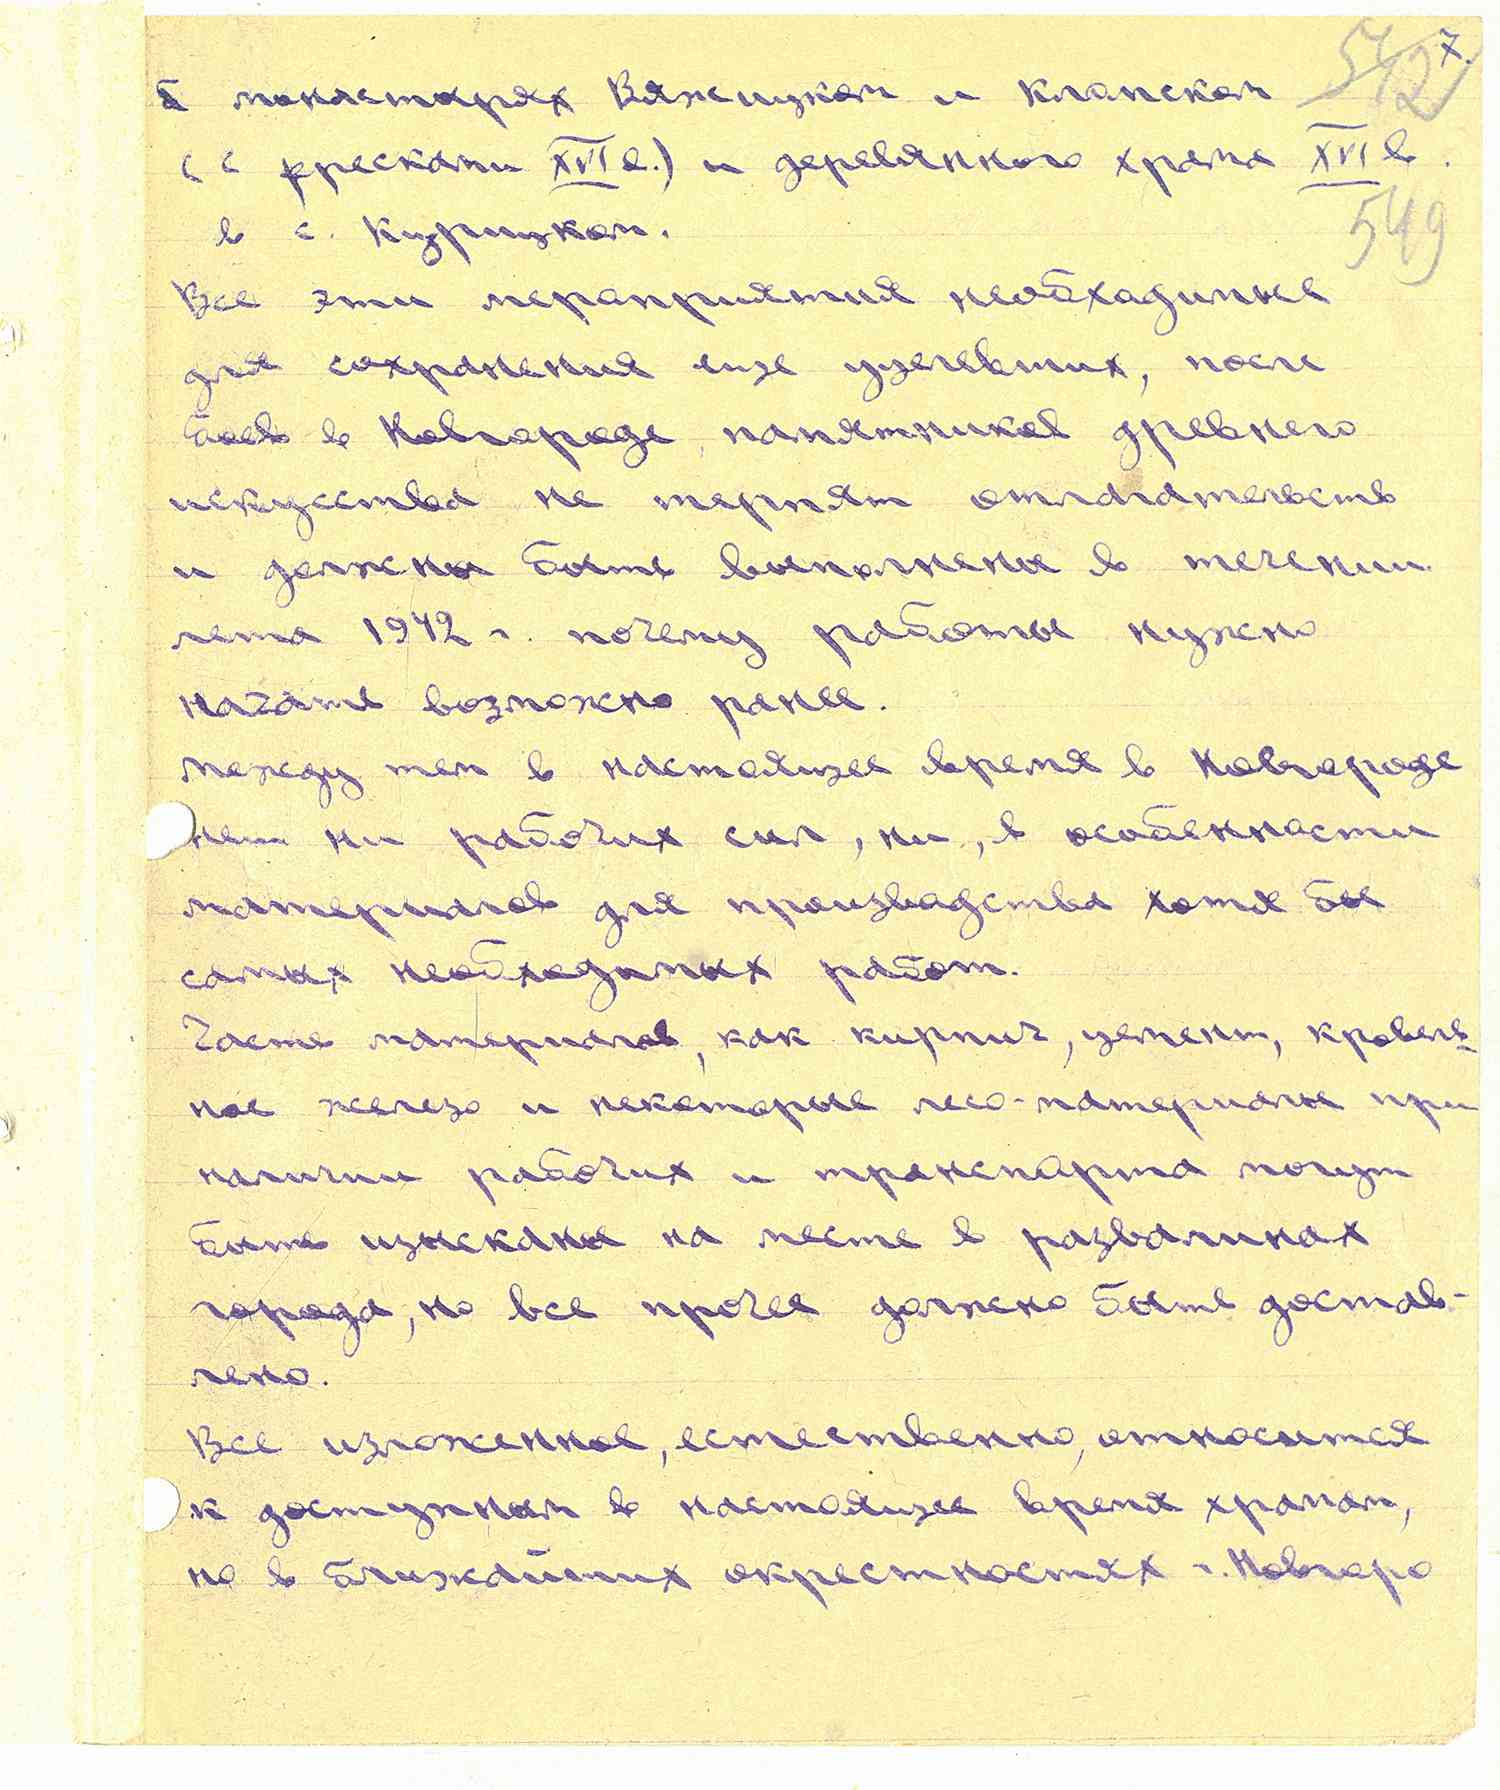 7.
512
в монастырях Вяжицком и Клопском
(с фресками XVI в.) и деревянного храма XVI в.
549
в с. Курицком.
Все эти мероприятия необходимые
для сохранения еще уцелевших, после
боев в Новгороде, памятников древнего
искусства не терпят отлагательств
и должны быть выполнены в течении
лета 1942 г. почему работы нужно
начать возможно ранее.
Между тем в настоящее время в Новгороде
нет ни рабочих сил, ни, в особенности
материалов для производства хотя бы
самых необходимых работ.
Часть материалов, как кирпич, цемент, кровель-
ное железо и некоторые лесо-материалы при
наличии рабочих и транспорта могут
быть изысканы на месте в развалинах
города, но все прочее должно быть достав-
лено.
Все изложенное, естественно, относится
к доступным в настоящее время храмам,
но в ближайших окрестностях г. Новгоро